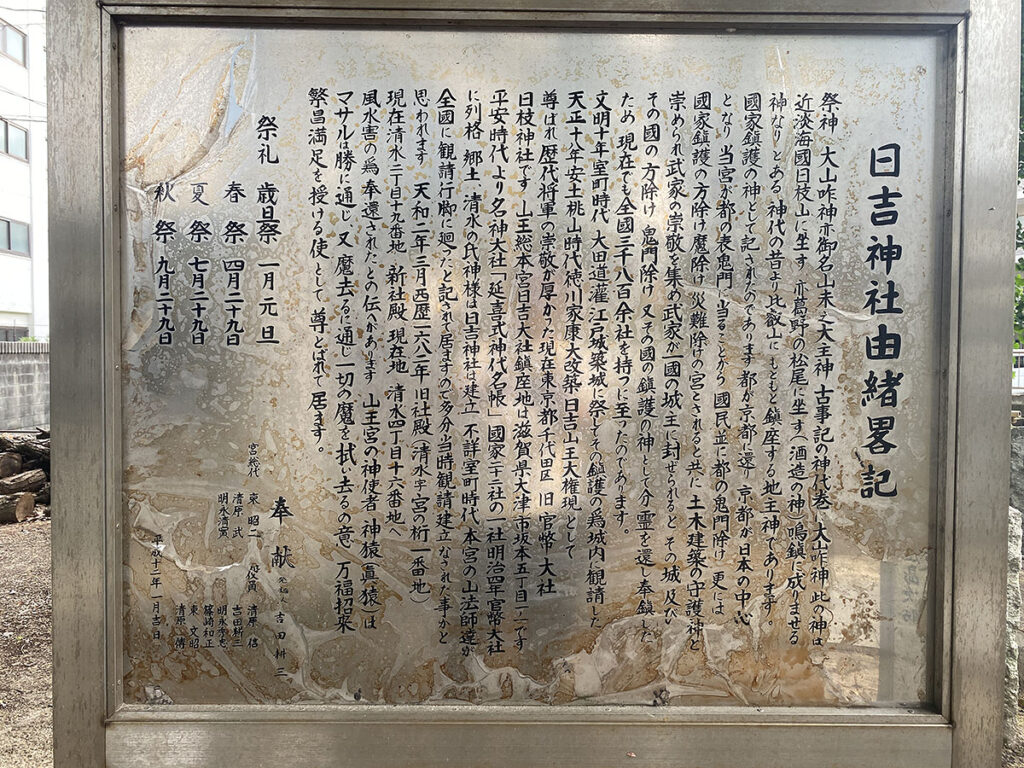 日吉神社由緒畧記
祭神 大山咋神亦御名山末之大主神 古事記の神代巻 大山咋神此の神は
近淡海國日枝山に坐す 亦葛野の松尾に坐す(酒造の神)鳴鏑に成りませる
神なりとある 神代の昔より比叡山にもともと鎮座する地主神であります。
國家鎮護の神として記されたのであります 都が京都に還り 京都が日本の中心
となり 当宮が都の表鬼門に当ることから 國民並に都の鬼門除け 更には
國家鎮護の方除け魔除け災難除けの宮とされると共に 土木建築の守護神と
崇められ武家の崇敬を集め武家が一國の城主に封ぜられると その城及び
その國の方除け 鬼門除け 又その國の鎮護の神として分霊を還し奉鎮した
ため 現在でも全國三千八百余社を持つに至ったのであります。
文明十年室町時代 大田道灌 江戸城築城に祭しその鎮護の為城内に観請した
天正十八年安土桃山時代徳川家康大改築し日吉山王大権現として
尊ばれ歴代将軍の崇敬が厚かった現在東京都千代田区 旧 官幣大社
日枝神社です 山王総本宮日吉大社鎮座地は滋賀県大津市坂本五丁目一一です
平安時代より名神大社「延喜式神代名帳」國家二十二社の一社明治四年官幣大社
に列格 郷土 清水の氏神様は日吉神社は建立 不詳室町時代 本宮の山法師達が
全國に観請行脚に廻ったと記されて居ますので多分当時観請建立なされた事かと
思われます 天和二年三月西歴一六八二年 旧社殿(清水字宮の桁一番地)
現在清水二丁目十九番地 新社殿 現在地 清水四丁目十六番地へ
風水害の為 奉還されたとの伝へがあります 山王宮の神使者(神猿 真猿)は
マサルは勝に通じ、又 魔去るに通じ一切の魔を拭い去るの意 万福招来
繁昌満足を授ける使として尊とばれて居ます。
祭礼 歳旦祭 一月元旦
春祭 四月二十九日
夏祭 七月二十九日
秋祭 九月二十九日
奉献 発起人 吉田耕三
宮総代 東 昭二
清原 武
明永清寅
役員 清原 信
吉田新三
明永孝志
篠崎和正
東 文昭
清原 傳
平成十二年一月吉日